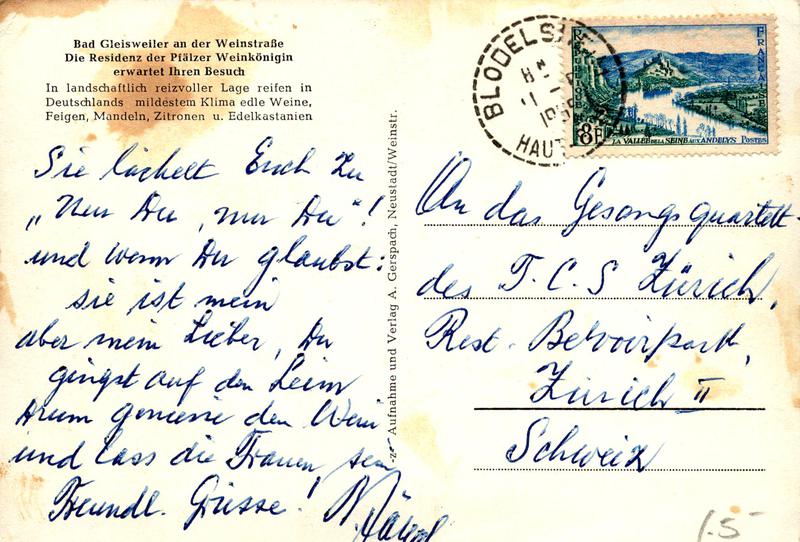 Bad Gleisweiler an der Weinstraße
Die Residenz der Pfälzer Weinkönigin
erwartet Ihren Besuch
In landschaftlich reizvoller Lage reifen in
Deutschlands mildestem Klima edle Weine,
Feigen, Mandeln, Zitronen u. Edelkastanien
Sie lächelt Euch zu
„Nur Du, nur Du"!
und wenn Du glaubst:
sie ist mein
aber mein Lieber, Du
gingst auf den Leim
drum geniesse den Wein
und lass die Frauen sein
Freundl. Grüsse!
Aufnahme und Verlag A. Gerspach, Neustadt/Weinstr.
BLODELSHEIM
HAUT
REPUBLIQUE
FRANÇAISE
8F
LA VALLÉE DE LA SEINE AUX ANDELYS POSTES
An das Gesangsquartett
des T.C.S Zürich,
Rest. Belvoirpark,
Zürich II
Schweiz
1.5-